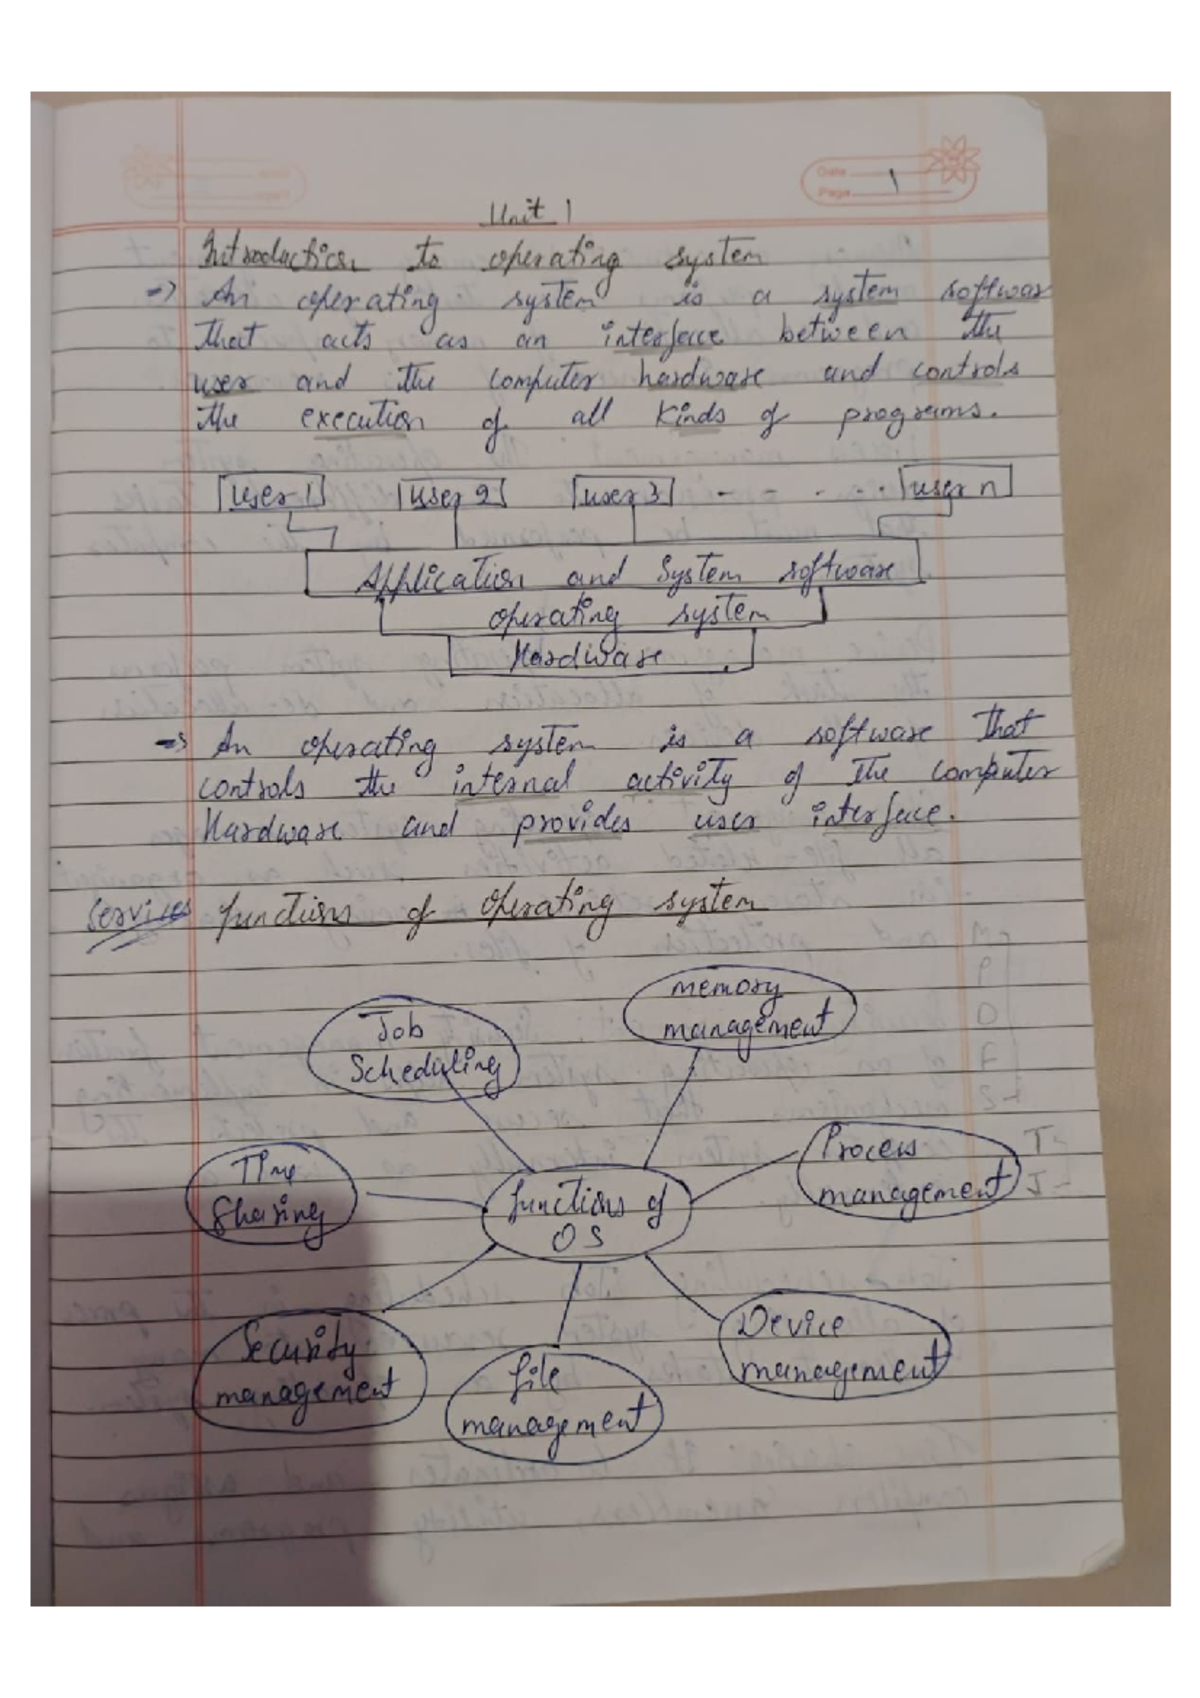 Date
Page 1
Unit 1
Introduction to operating system
=> An operating system is a system softwar
that acts as an interface between the
user and the computer hardware and controls
the execution of all kinds of programs.
user 1 user 2 user 3 - - - - - - user n
Application and System software
operating system
Hardware
=> An operating system is a software that
controls the internal activity of the computer
Hardware and provides user interface.
Services functions of operating system
memory
management
Job
Scheduling
Process
management
Time
Sharing
functions of
OS
Device
management
Security
management
file
management